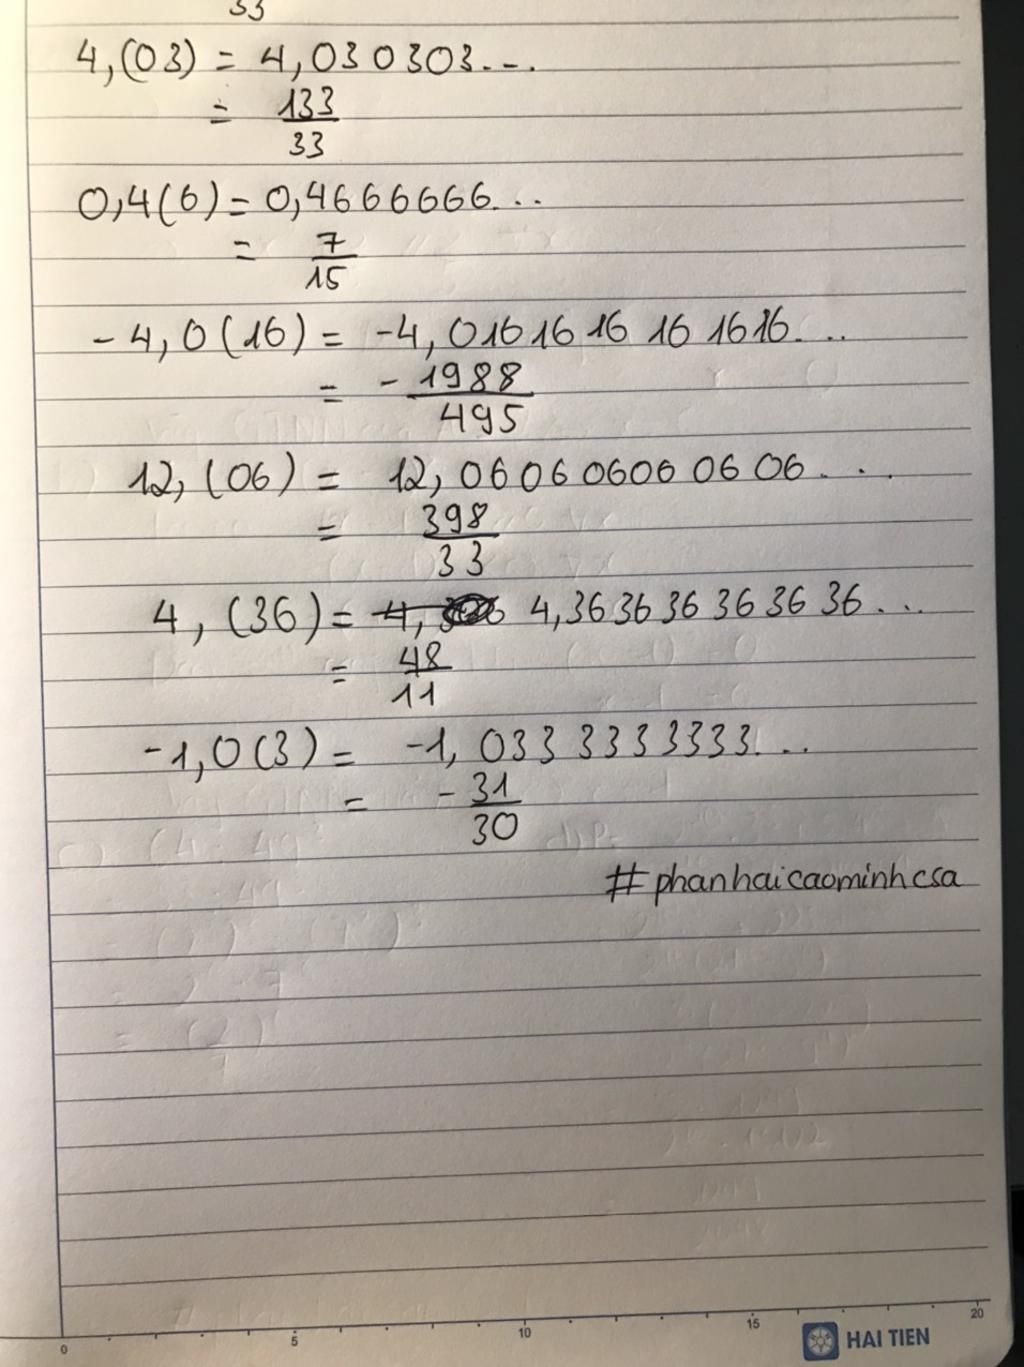 33
4,(03) = 4,030303...
= 133/33
0,4(6) = 0,4666666...
= 7/15
-4,0(16) = -4,0161616161616...
= -1988/495
12,(06) = 12,060606060606...
= 398/33
4,(36) = 4,363636363636...
= 48/11
-1,0(3) = -1,0333333333...
= -31/30
#phanhaicaominhcsa
0 5 10 15 20
HAI TIEN